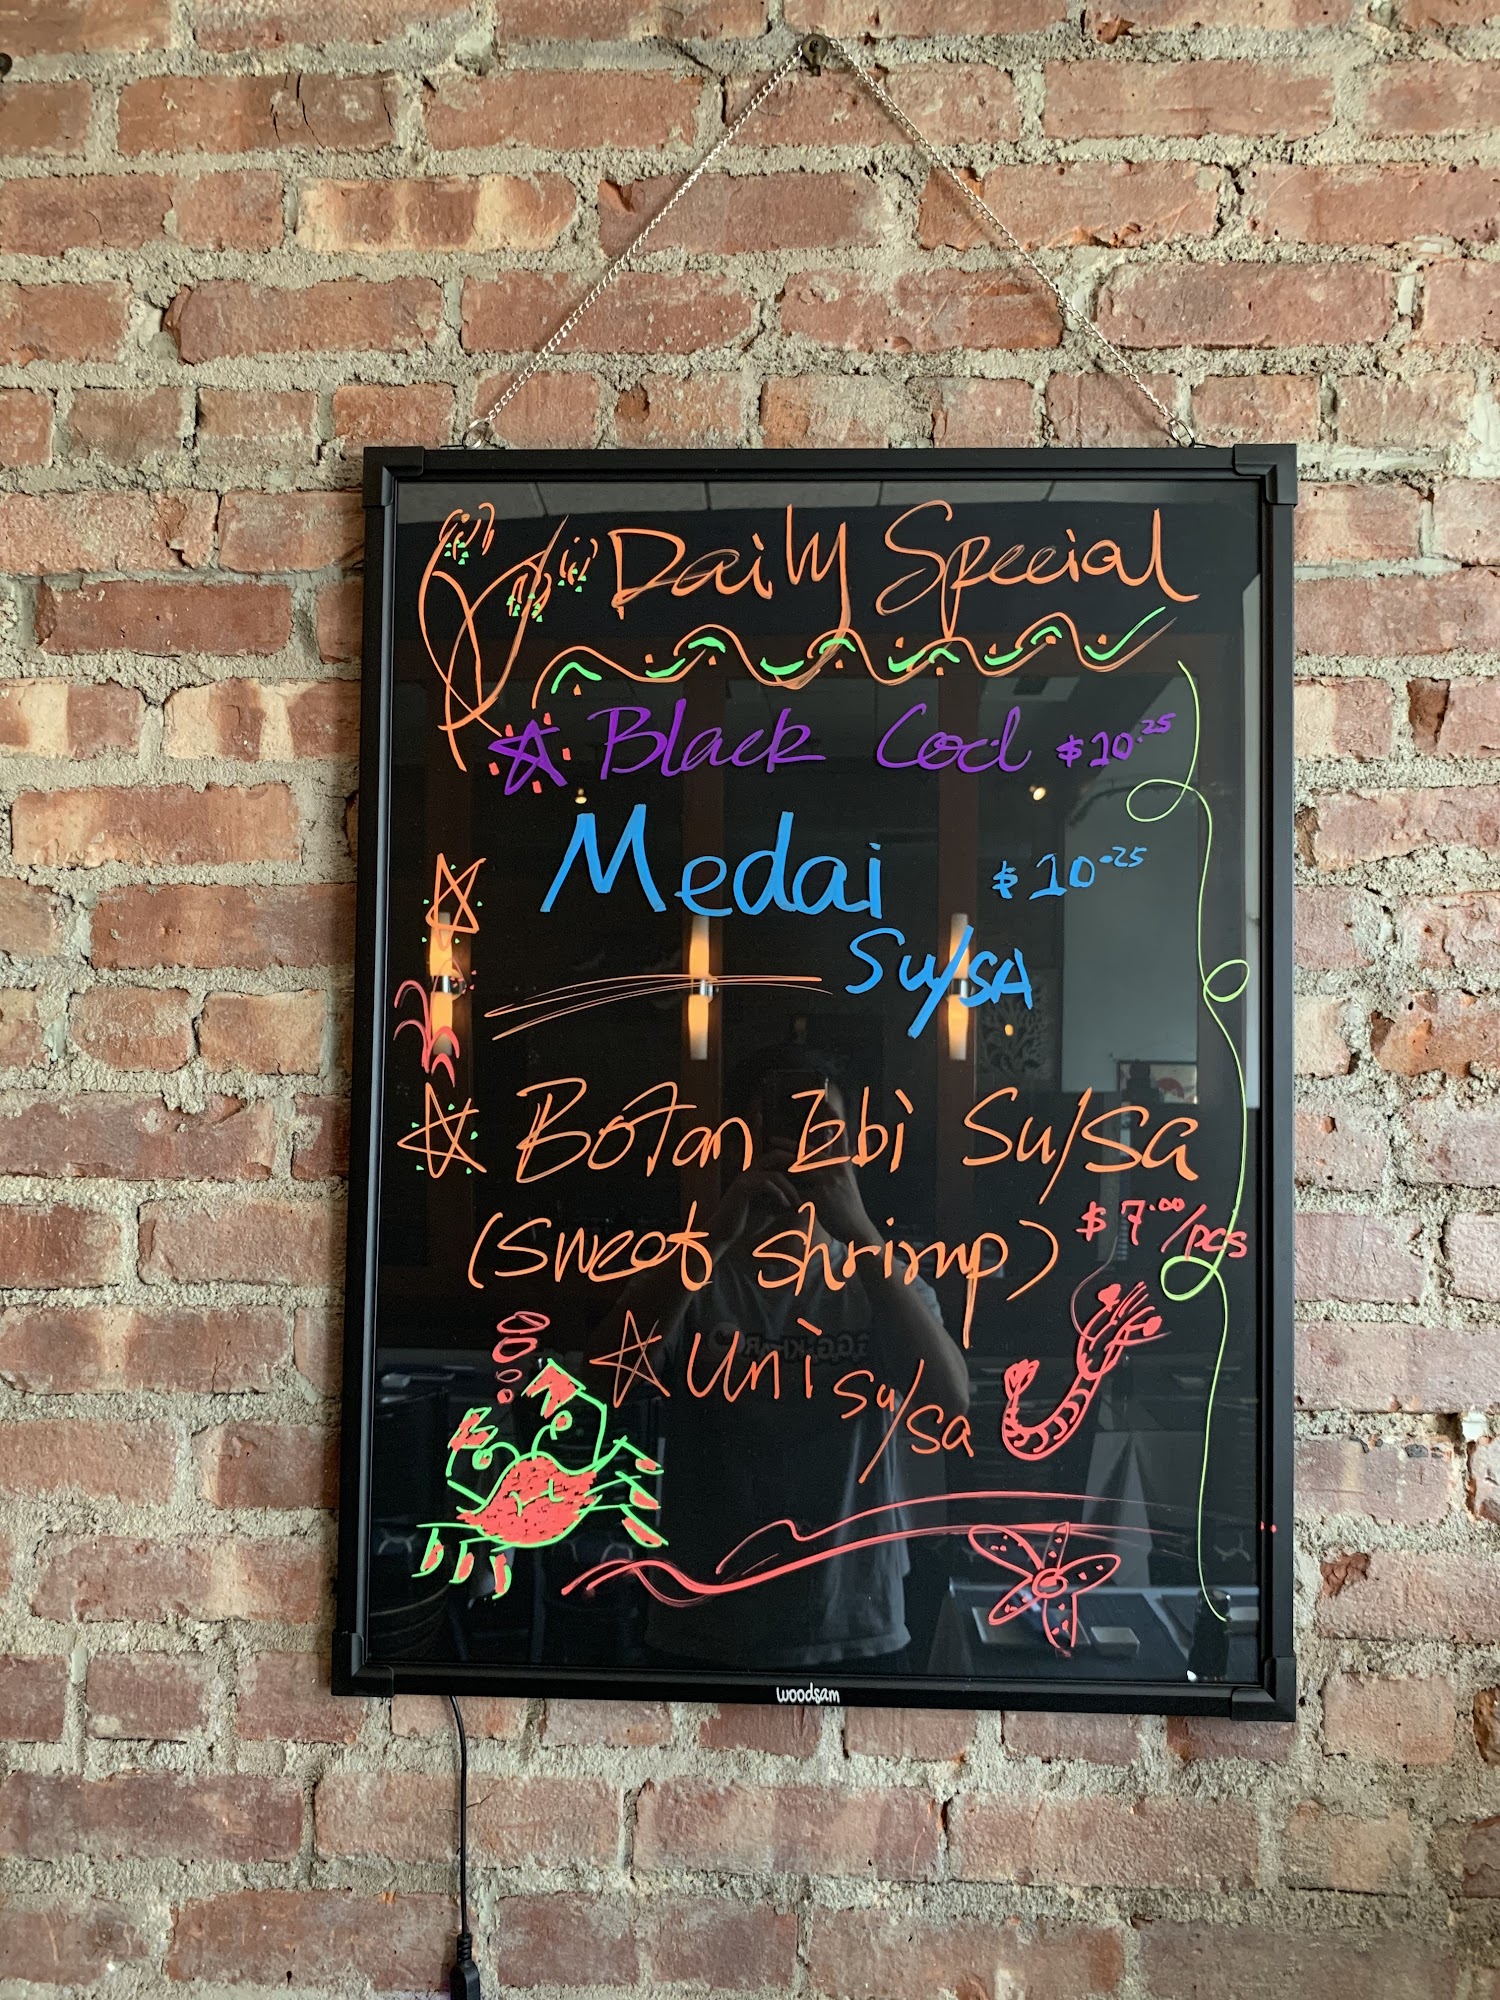 Daily Special
Black Cod $10.25
Medai $10.25
Su/SA
Botan Ebi Su/Sa
(sweet shrimp) $7.00/pcs
Uni Su/Sa
woodsam